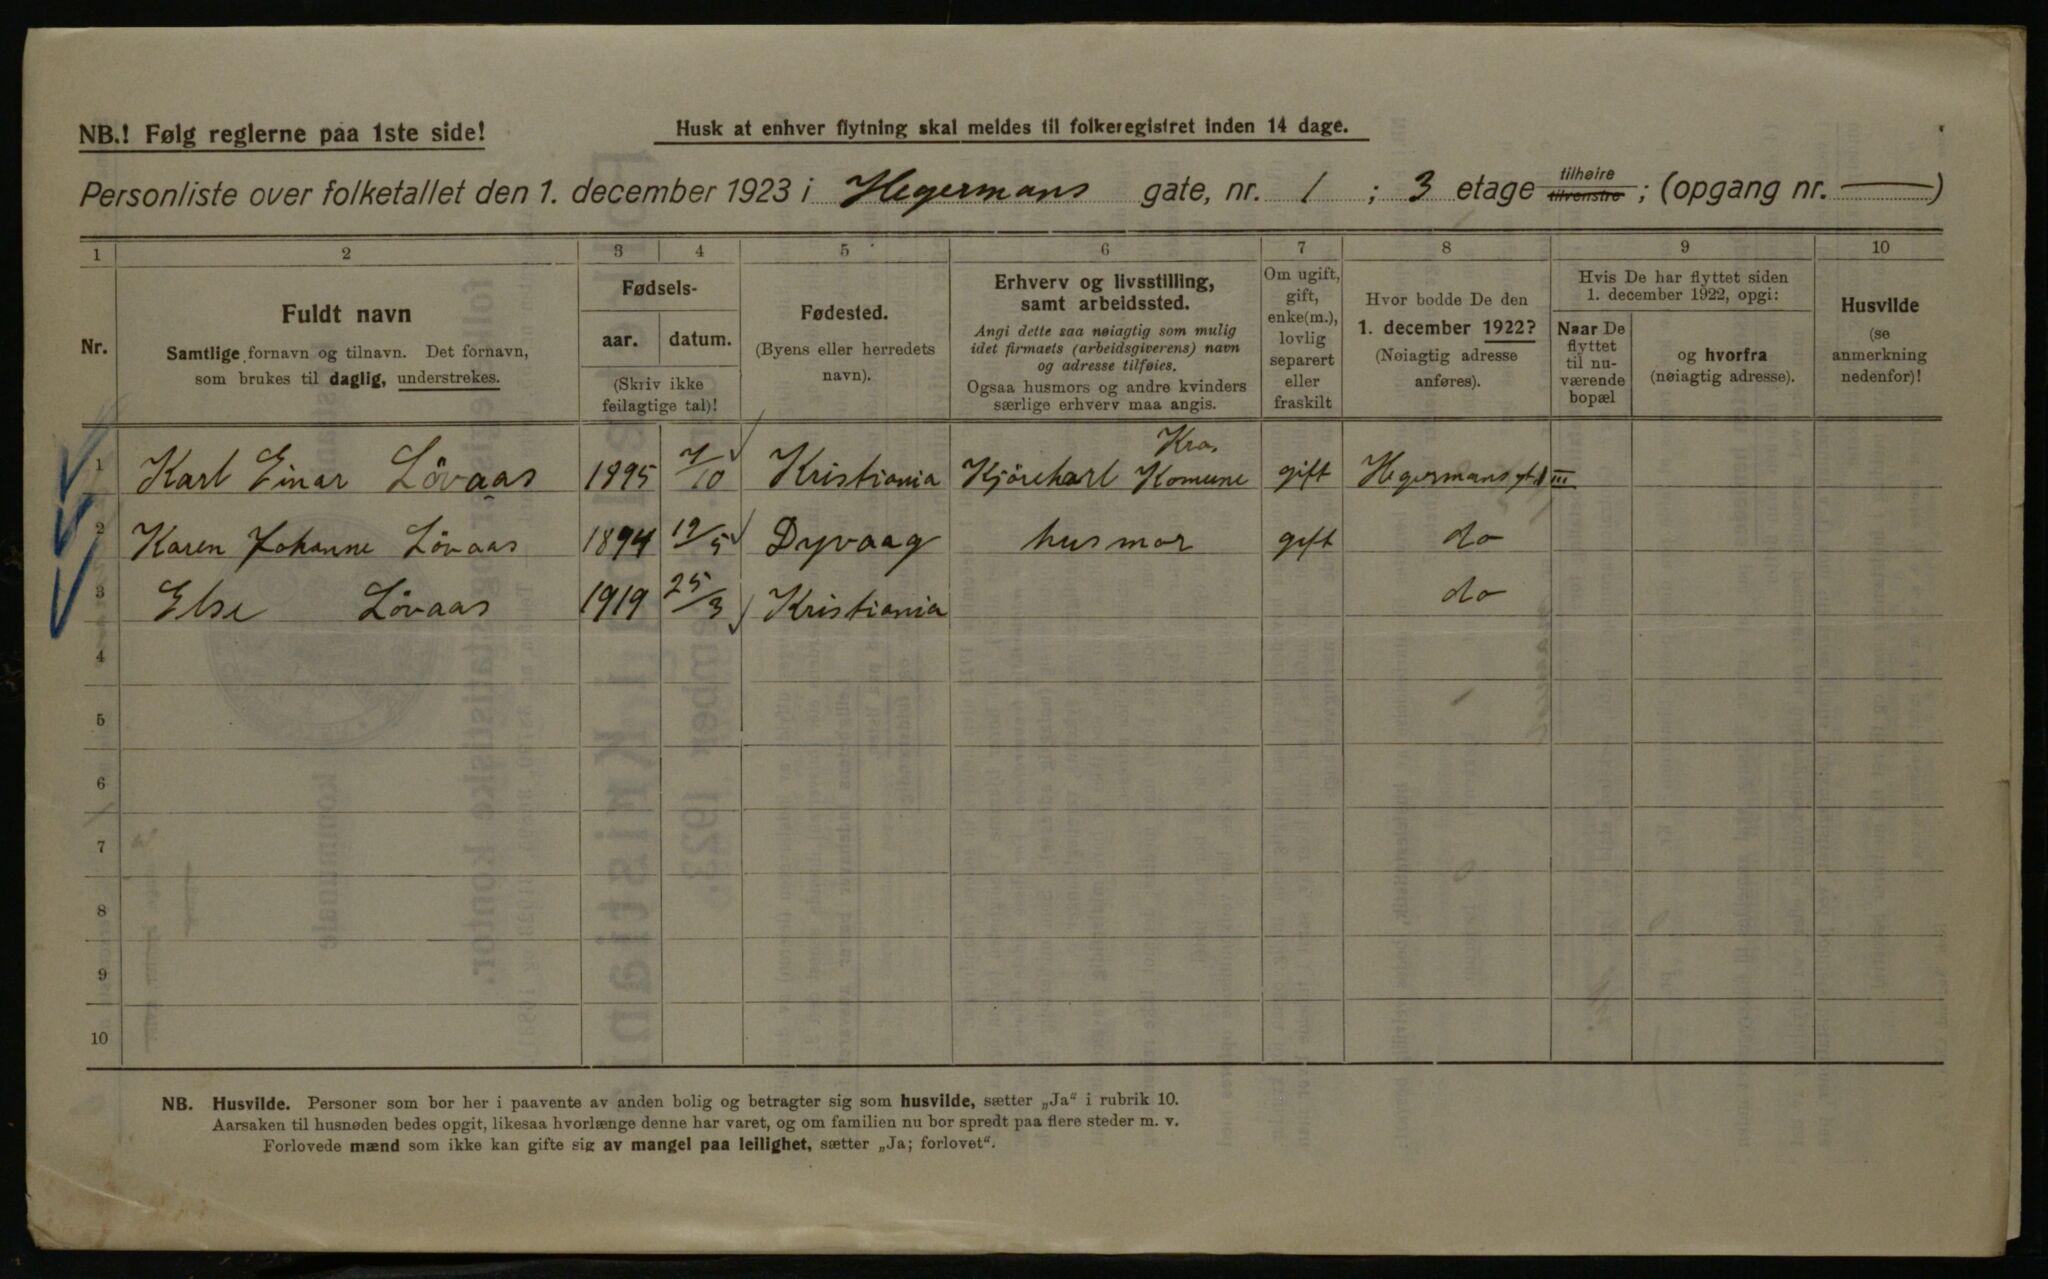 NB.! Følg reglerne paa 1ste side!
Husk at enhver flytning skal meldes til folkeregistret inden 14 dage.
Personliste over folketallet den 1. december 1923 i Hegermans gate, nr. 1 ; 3 etage tilhøire tilvenstre ; (opgang nr. — )
1 2 3 4 5 6 7 8 9 10
Nr.
Fuldt navn
Samtlige fornavn og tilnavn. Det fornavn,
som brukes til daglig, understrekes.
Fødsels-
aar. datum.
(Skriv ikke
feilagtige tal)!
Fødested.
(Byens eller herredets
navn).
Erhverv og livsstilling,
samt arbeidssted.
Angi dette saa nøiagtig som mulig
idet firmaets (arbeidsgiverens) navn
og adresse tilføies.
Ogsaa husmors og andre kvinders
særlige erhverv maa angis.
Om ugift,
gift,
enke(m.),
lovlig
separert
eller
fraskilt
Hvor bodde De den
1. december 1922?
(Nøiagtig adresse
anføres).
Hvis De har flyttet siden
1. december 1922, opgi:
Naar De
flyttet
til nu-
værende
bopæl
og hvorfra
(nøiagtig adresse).
Husvilde
(se
anmerkning
nedenfor)!
1 Karl Einar Lövaas 1895 7/10 Kristiania Kjörekarl Kra. Komune gift Hegermansgt. 1 III
2 Karen Johanne Lövaas 1894 12/5 Dyvaag husmor gift do
3 Else Lövaas 1919 25/3 Kristiania do
4
5
6
7
8
9
10
NB. Husvilde. Personer som bor her i paavente av anden bolig og betragter sig som husvilde, sætter „Ja“ i rubrik 10.
Aarsaken til husnøden bedes opgit, likesaa hvorlænge denne har varet, og om familien nu bor spredt paa flere steder m. v.
Forlovede mænd som ikke kan gifte sig av mangel paa leilighet, sætter „Ja; forlovet“.